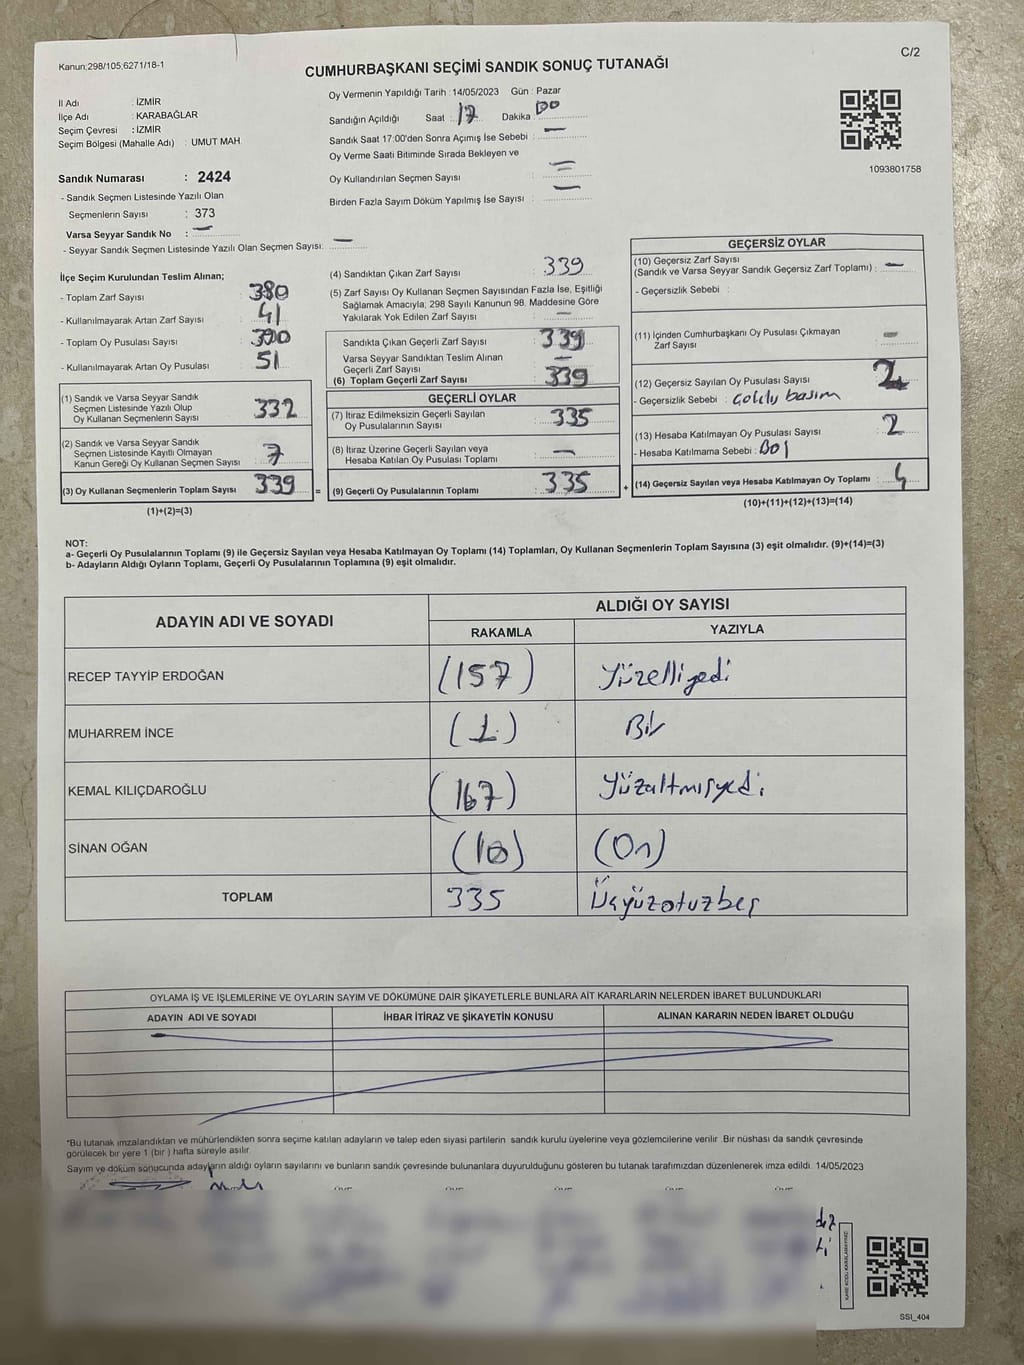 Kanun;298/105;6271/18-1
C/2
CUMHURBAŞKANI SEÇİMİ SANDIK SONUÇ TUTANAĞI
İl Adı : İZMİR
İlçe Adı : KARABAĞLAR
Seçim Çevresi : İZMİR
Seçim Bölgesi (Mahalle Adı) : UMUT MAH
Sandık Numarası : 2424
- Sandık Seçmen Listesinde Yazılı Olan
Seçmenlerin Sayısı : 373
Varsa Seyyar Sandık No : —
- Seyyar Sandık Seçmen Listesinde Yazılı Olan Seçmen Sayısı: —
Oy Vermenin Yapıldığı Tarih : 14/05/2023 Gün : Pazar
Sandığın Açıldığı Saat : 17 Dakika : 00
Sandık Saat 17:00'den Sonra Açımış İse Sebebi : —
Oy Verme Saati Bitiminde Sırada Bekleyen ve
Oy Kullandırılan Seçmen Sayısı : —
Birden Fazla Sayım Döküm Yapılmış İse Sayısı : —
1093801758
İlçe Seçim Kurulundan Teslim Alınan;
- Toplam Zarf Sayısı 380
- Kullanılmayarak Artan Zarf Sayısı 41
- Toplam Oy Pusulası Sayısı 390
- Kullanılmayarak Artan Oy Pusulası 51
(1) Sandık ve Varsa Seyyar Sandık
Seçmen Listesinde Yazılı Olup
Oy Kullanan Seçmenlerin Sayısı 332
(2) Sandık ve Varsa Seyyar Sandık
Seçmen Listesinde Kayıtlı Olmayan
Kanun Gereği Oy Kullanan Seçmen Sayısı 7
(3) Oy Kullanan Seçmenlerin Toplam Sayısı 339 =
(1)+(2)=(3)
(4) Sandıktan Çıkan Zarf Sayısı : 339
(5) Zarf Sayısı Oy Kullanan Seçmen Sayısından Fazla İse, Eşitliği
Sağlamak Amacıyla; 298 Sayılı Kanunun 98. Maddesine Göre
Yakılarak Yok Edilen Zarf Sayısı : —
Sandıkta Çıkan Geçerli Zarf Sayısı : 339
Varsa Seyyar Sandıktan Teslim Alınan
Geçerli Zarf Sayısı : —
(6) Toplam Geçerli Zarf Sayısı : 339
GEÇERLİ OYLAR
(7) İtiraz Edilmeksizin Geçerli Sayılan
Oy Pusulalarının Sayısı : 335
(8) İtiraz Üzerine Geçerli Sayılan veya
Hesaba Katılan Oy Pusulası Toplamı : —
(9) Geçerli Oy Pusulalarının Toplamı : 335 +
GEÇERSİZ OYLAR
(10) Geçersiz Zarf Sayısı
(Sandık ve Varsa Seyyar Sandık Geçersiz Zarf Toplamı) : —
- Geçersizlik Sebebi :
(11) İçinden Cumhurbaşkanı Oy Pusulası Çıkmayan
Zarf Sayısı : —
(12) Geçersiz Sayılan Oy Pusulası Sayısı : 2
- Geçersizlik Sebebi : Çoklu basım
(13) Hesaba Katılmayan Oy Pusulası Sayısı : 2
- Hesaba Katılmama Sebebi : Boş
(14) Geçersiz Sayılan veya Hesaba Katılmayan Oy Toplamı : 4
(10)+(11)+(12)+(13)=(14)
NOT:
a- Geçerli Oy Pusulalarının Toplamı (9) ile Geçersiz Sayılan veya Hesaba Katılmayan Oy Toplamı (14) Toplamları, Oy Kullanan Seçmenlerin Toplam Sayısına (3) eşit olmalıdır. (9)+(14)=(3)
b- Adayların Aldığı Oyların Toplamı, Geçerli Oy Pusulalarının Toplamına (9) eşit olmalıdır.
ADAYIN ADI VE SOYADI
ALDIĞI OY SAYISI
RAKAMLA YAZIYLA
RECEP TAYYİP ERDOĞAN (157) Yüzelliyedi
MUHARREM İNCE (1) Bir
KEMAL KILIÇDAROĞLU (167) Yüzaltmışyedi
SİNAN OĞAN (10) (On)
TOPLAM 335 Üçyüzotuzbeş
OYLAMA İŞ VE İŞLEMLERİNE VE OYLARIN SAYIM VE DÖKÜMÜNE DAİR ŞİKAYETLERLE BUNLARA AİT KARARLARIN NELERDEN İBARET BULUNDUKLARI
ADAYIN ADI VE SOYADI İHBAR İTİRAZ VE ŞİKAYETİN KONUSU ALINAN KARARIN NEDEN İBARET OLDUĞU
*Bu tutanak imzalandıktan ve mühürlendikten sonra seçime katılan adayların ve talep eden siyasi partilerin sandık kurulu üyelerine veya gözlemcilerine verilir. Bir nüshası da sandık çevresinde
görülecek bir yere 1 (bir ) hafta süreyle asılır.
Sayım ve döküm sonucunda adayların aldığı oyların sayılarını ve bunların sandık çevresinde bulunanlara duyurulduğunu gösteren bu tutanak tarafımızdan düzenlenerek imza edildi. 14/05/2023
SSI_404